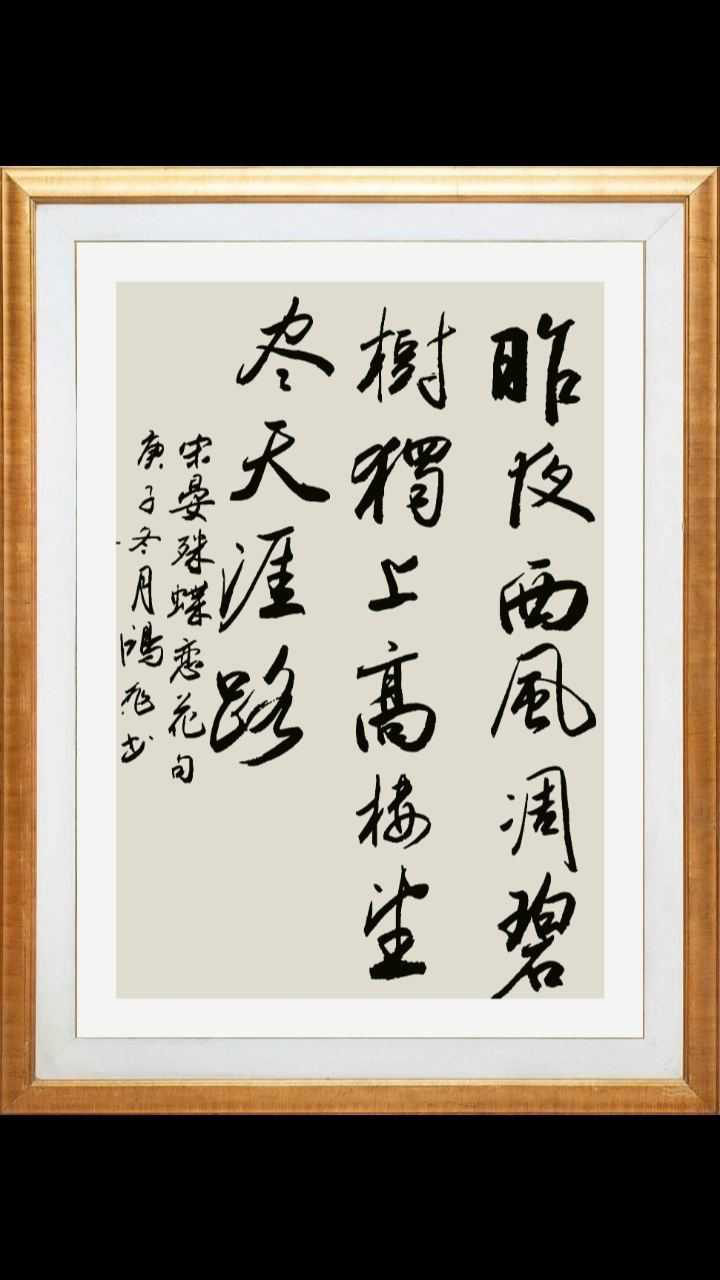 昨夜西風凋碧
樹獨上高樓望
尽天涯路
宋晏殊蝶恋花句
庚子冬月鴻飛书